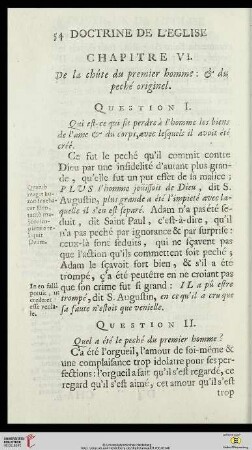 54 DOCTRINE DE L'EGLISE
CHAPITRE VI.
De la chûte du premier homme: & du
peché originel.
QUESTION I.
Qui est-ce qui fit perdre à l'homme les biens
de l'ame & du corps, avec lesquels il avoit été
créé.
Ce fut le peché qu'il commit contre
Dieu par une infidelité d'autant plus gran-
de, qu'elle fut un pur effet de sa malice;
PLUS l'homme jouissoit de Dieu, dit S.
Augustin, plus grande a été l'impieté avec la-
quelle il s'en est separé. Adam n'a pas été se-
duit, dit Saint Paul, c'est-à-dire, qu'il
n'a pas peché par ignorance & par surprise:
ceux-là sont seduits, qui ne sçavent pas
que l'action qu'ils commettent soit peché;
Adam le sçavoit fort bien, & s'il a été
trompé, ç'a été peutêtre en ne croiant pas
que son crime fut si grand: IL a pû estre
trompé, dit S. Augustin, en ce qu'il a cru que
sa faute n'estoit que venielle.
Deum.
In eo falli
potuit, ut
crederet
esse venia-
le.
QUESTION II.
Quel a été le peché du premier homme?
Ç'a été l'orgueil, l'amour de soi-même &
une complaisance trop idolatre pour ses per-
fections: l'orgueil a fait qu'il s'est regardé, ce
regard qu'il s'est aimé, cet amour qu'il s'est
trop